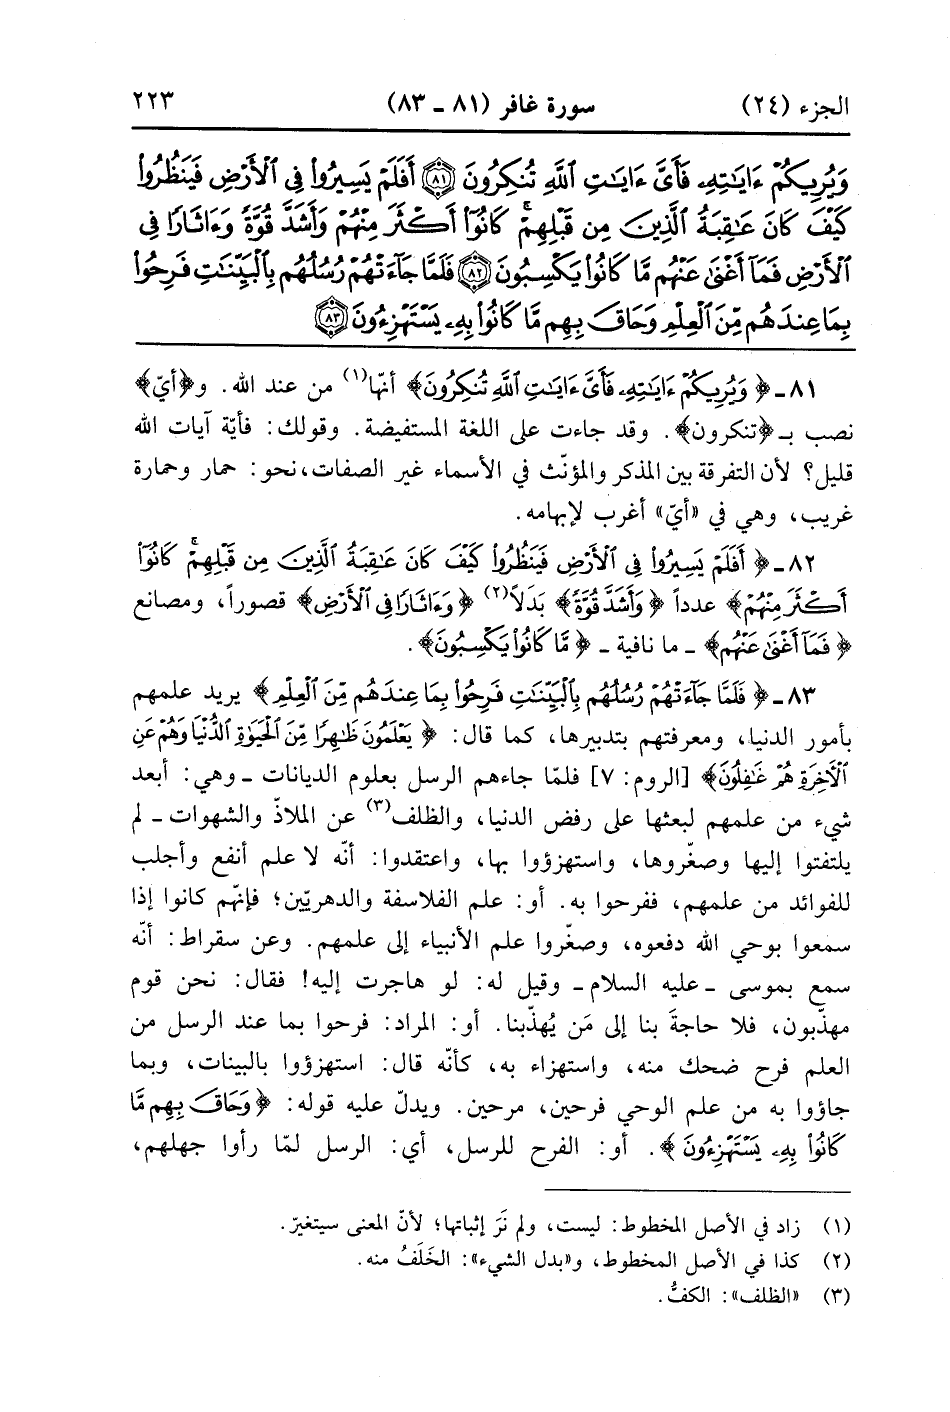 الجزء (٢٤) سورة غافر (٨١ ـ ٨٣) ٢٢٣
وَيُرِيكُمْ ءَايَٰتِهِۦ فَأَىَّ ءَايَٰتِ ٱللَّهِ تُنكِرُونَ ﴿٨١﴾ أَفَلَمْ يَسِيرُوا۟ فِى ٱلْأَرْضِ فَيَنظُرُوا۟
كَيْفَ كَانَ عَٰقِبَةُ ٱلَّذِينَ مِن قَبْلِهِمْ ۚ كَانُوٓا۟ أَكْثَرَ مِنْهُمْ وَأَشَدَّ قُوَّةً وَءَاثَارًا فِى
ٱلْأَرْضِ فَمَآ أَغْنَىٰ عَنْهُم مَّا كَانُوا۟ يَكْسِبُونَ ﴿٨٢﴾ فَلَمَّا جَآءَتْهُمْ رُسُلُهُم بِٱلْبَيِّنَٰتِ فَرِحُوا۟
بِمَا عِندَهُم مِّنَ ٱلْعِلْمِ وَحَاقَ بِهِم مَّا كَانُوا۟ بِهِۦ يَسْتَهْزِءُونَ ﴿٨٣﴾
٨١ ـ ﴿وَيُرِيكُمْ ءَايَٰتِهِۦ فَأَىَّ ءَايَٰتِ ٱللَّهِ تُنكِرُونَ﴾ أنّها(١) من عند الله. و﴿أيّ﴾
نصب بـ﴿تنكرون﴾. وقد جاءت على اللغة المستفيضة. وقولك: فأيّة آيات الله
قليل؟ لأن التفرقة بين المذكر والمؤنّث في الأسماء غير الصفات، نحو: حمار وحمارة
غريب، وهي في «أيّ» أغرب لإبهامه.
٨٢ ـ ﴿أَفَلَمْ يَسِيرُوا۟ فِى ٱلْأَرْضِ فَيَنظُرُوا۟ كَيْفَ كَانَ عَٰقِبَةُ ٱلَّذِينَ مِن قَبْلِهِمْ ۚ كَانُوٓا۟
أَكْثَرَ مِنْهُمْ﴾ عدداً ﴿وَأَشَدَّ قُوَّةً﴾ بَدَلاً(٢) ﴿وَءَاثَارًا فِى ٱلْأَرْضِ﴾ قصوراً، ومصانع
﴿فَمَآ أَغْنَىٰ عَنْهُم﴾ ـ ما نافية ـ ﴿مَّا كَانُوا۟ يَكْسِبُونَ﴾.
٨٣ ـ ﴿فَلَمَّا جَآءَتْهُمْ رُسُلُهُم بِٱلْبَيِّنَٰتِ فَرِحُوا۟ بِمَا عِندَهُم مِّنَ ٱلْعِلْمِ﴾ يريد علمهم
بأمور الدنيا، ومعرفتهم بتدبيرها، كما قال: ﴿يَعْلَمُونَ ظَٰهِرًا مِّنَ ٱلْحَيَوٰةِ ٱلدُّنْيَا وَهُمْ عَنِ
ٱلْءَاخِرَةِ هُمْ غَٰفِلُونَ﴾ [الروم: ٧] فلمّا جاءهم الرسل بعلوم الديانات ـ وهي: أبعد
شيء من علمهم لبعثها على رفض الدنيا، والظلف(٣) عن الملاذّ والشهوات ـ لم
يلتفتوا إليها وصغّروها، واستهزؤوا بها، واعتقدوا: أنّه لا علم أنفع وأجلب
للفوائد من علمهم، ففرحوا به. أو: علم الفلاسفة والدهريّين؛ فإنهّم كانوا إذا
سمعوا بوحي الله دفعوه، وصغّروا علم الأنبياء إلى علمهم. وعن سقراط: أنّه
سمع بموسى ـ عليه السلام ـ وقيل له: لو هاجرت إليه! فقال: نحن قوم
مهذّبون، فلا حاجةَ بنا إلى مَن يُهذّبنا. أو: المراد: فرحوا بما عند الرسل من
العلم فرح ضحك منه، واستهزاء به، كأنّه قال: استهزؤوا بالبينات، وبما
جاؤوا به من علم الوحي فرحين، مرحين. ويدلّ عليه قوله: ﴿وَحَاقَ بِهِم مَّا
كَانُوا۟ بِهِۦ يَسْتَهْزِءُونَ﴾. أو: الفرح للرسل، أي: الرسل لمّا رأوا جهلهم،
(١) زاد في الأصل المخطوط: ليست، ولم نَرَ إثباتها؛ لأنّ المعنى سيتغيّر.
(٢) كذا في الأصل المخطوط، و«بدل الشيء»: الخَلَفُ منه.
(٣) «الظلف»: الكفُّ.